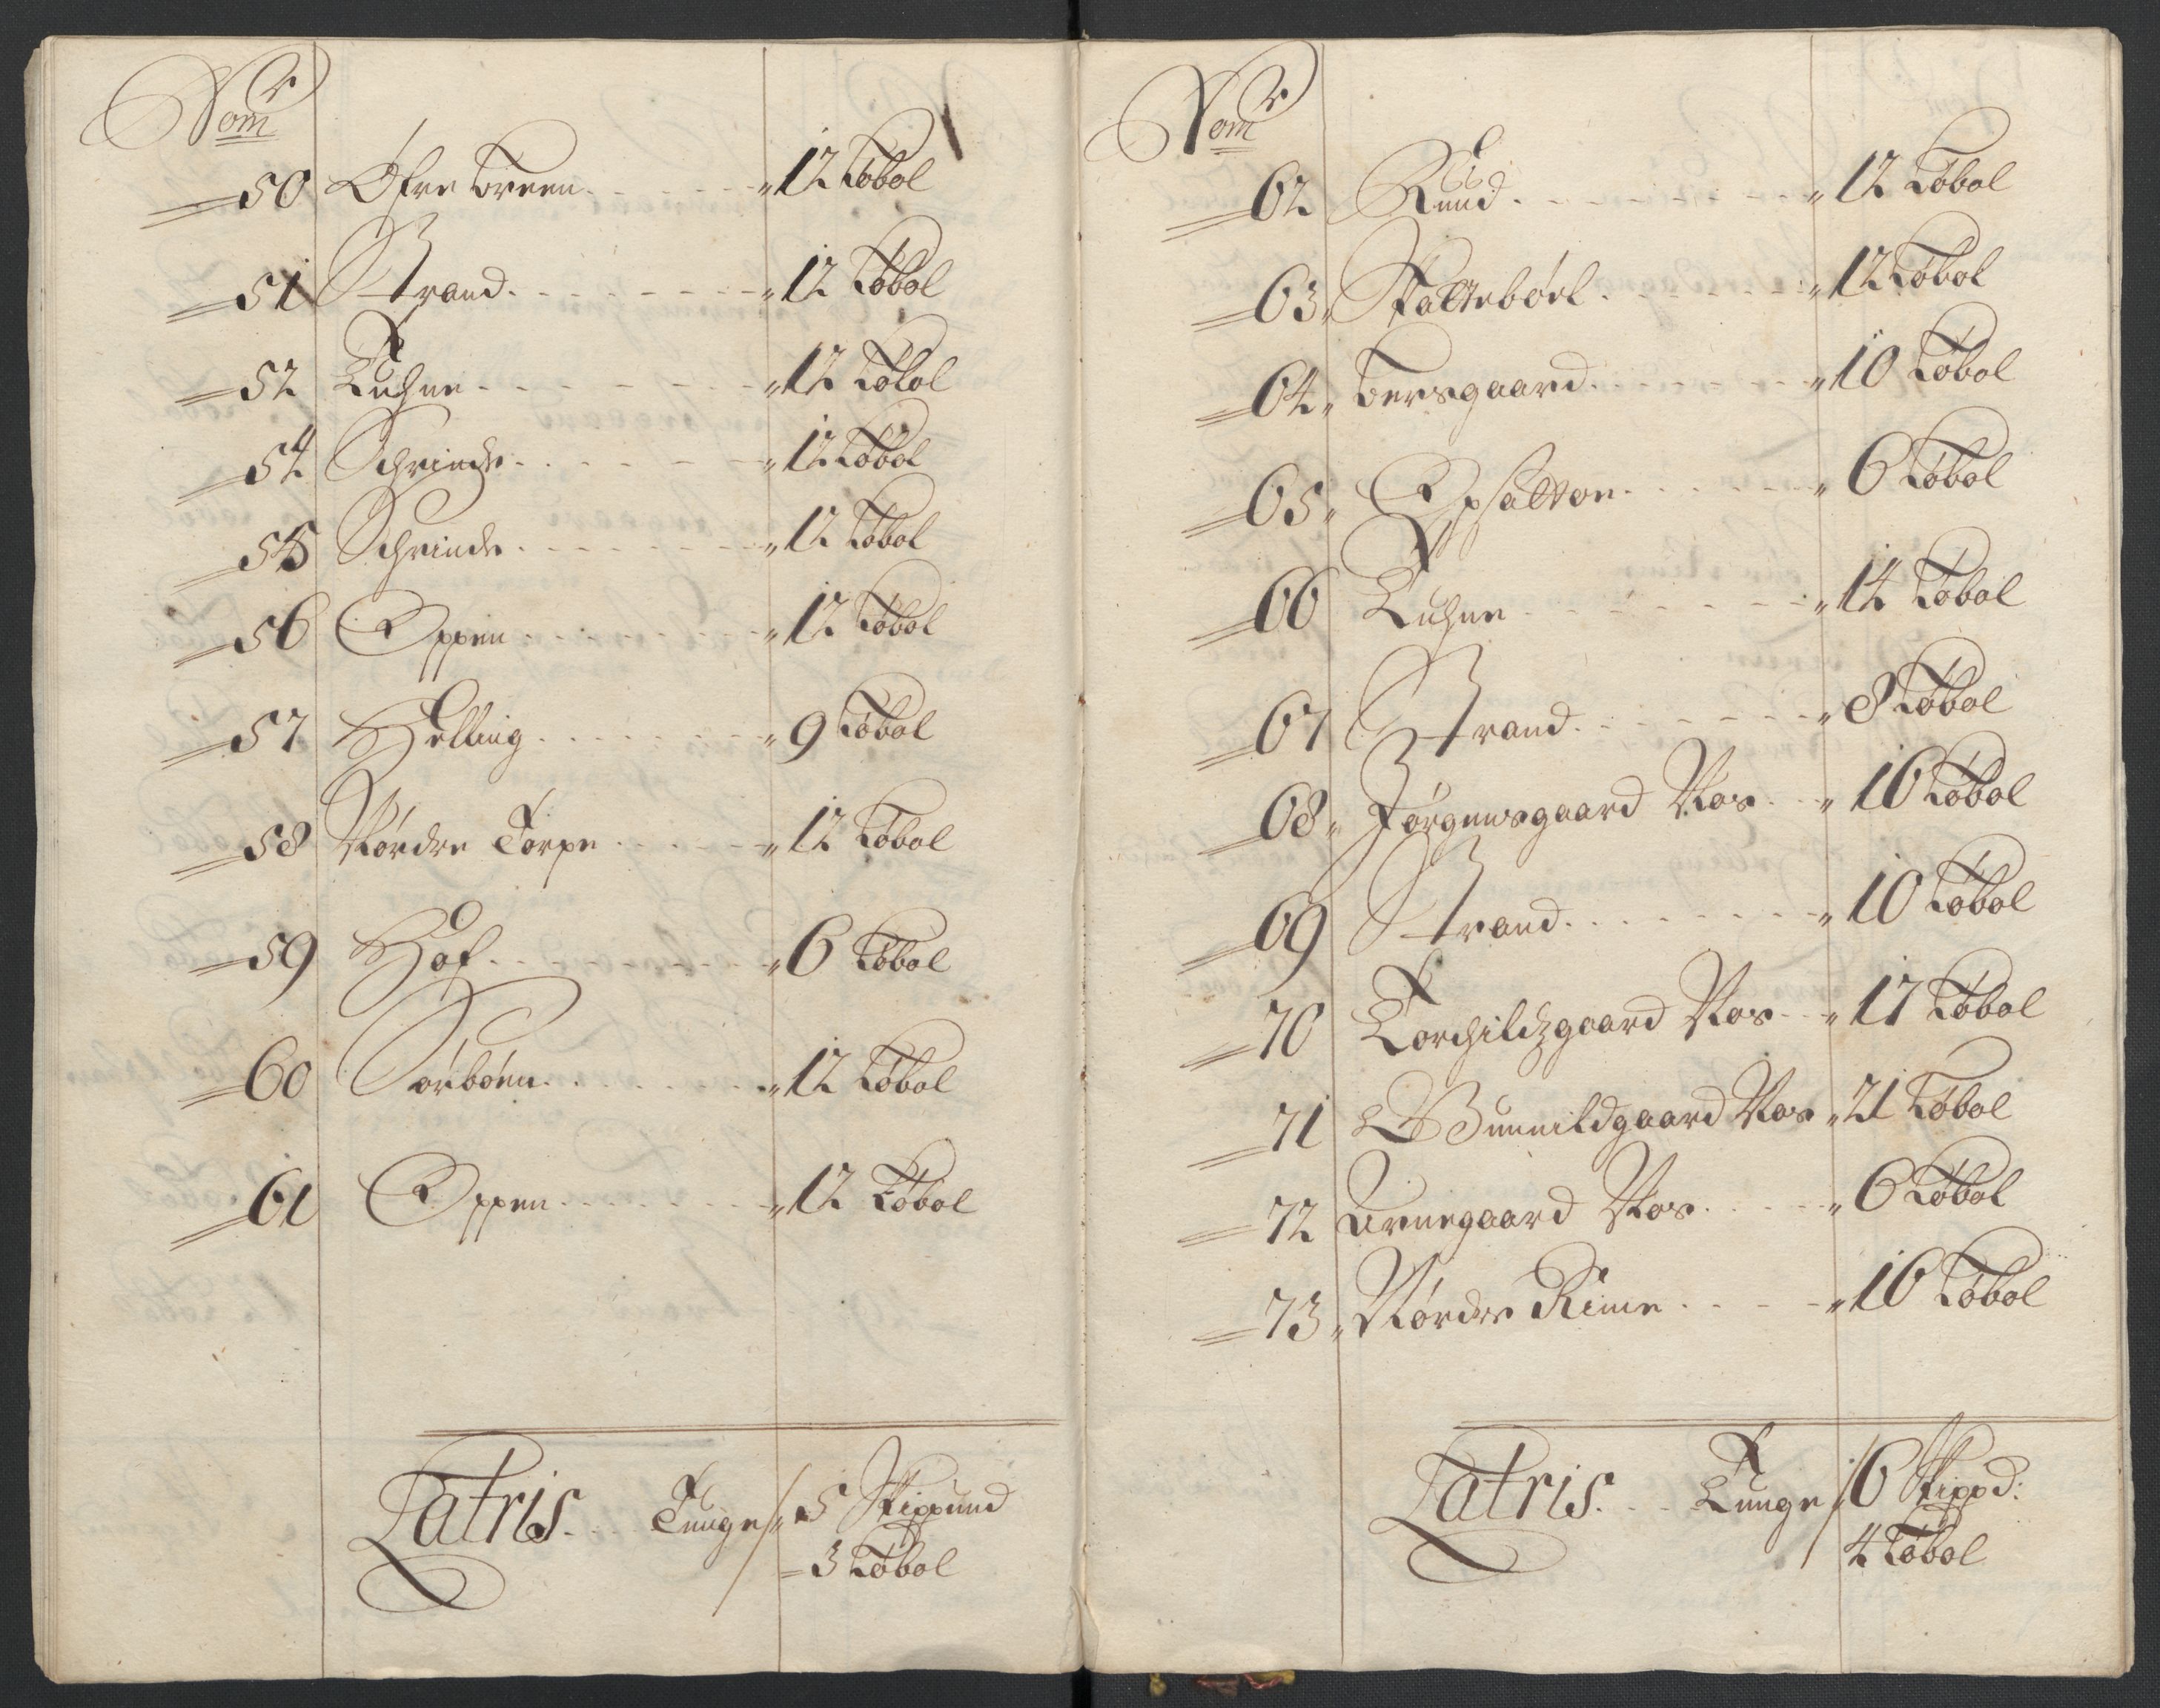 Nomr
50 Øfre Breen - - - - „12 Løbol
51 Strand - - - - „12 Løbol
52 Luhne - - - - „12 Løbol
54 Schrinde - - - - „12 Løbol
55 Schrinde - - - - „12 Løbol
56 Oppen - - - - „12 Løbol
57 Helling - - - - „9 Løbol
58 Nørdre Torpe - - - - „12 Løbol
59 Hof - - - - „6 Løbol
60 Sørbøen - - - - „12 Løbol
61 Oppen - - - - „12 Løbol
Latris - - Tunge „5 Skippund
3 Løbol
Nomr
62 Ruud - - - - „12 Løbol
63 „ Skaltebøel - - - - „12 Løbol
64 „ Bersgaard - - - - „10 Løbol
65 „ Opsatton - - - - „6 Løbol
66 Luhne - - - - „14 Løbol
67 Strand - - - - „8 Løbol
68 „ Jørgensgaard Næs - - „16 Løbol
69 Strand - - - - „10 Løbol
70 Torchildzgaard Næs - - „17 Løbol
71 Gunnildgaard Næs „21 Løbol
72 Arnegaard Næs - - - „6 Løbol
73 „ Nørdre Rime - - - - „16 Løbol
Latris - - Tunge 6 Skippd:
4 Løbol